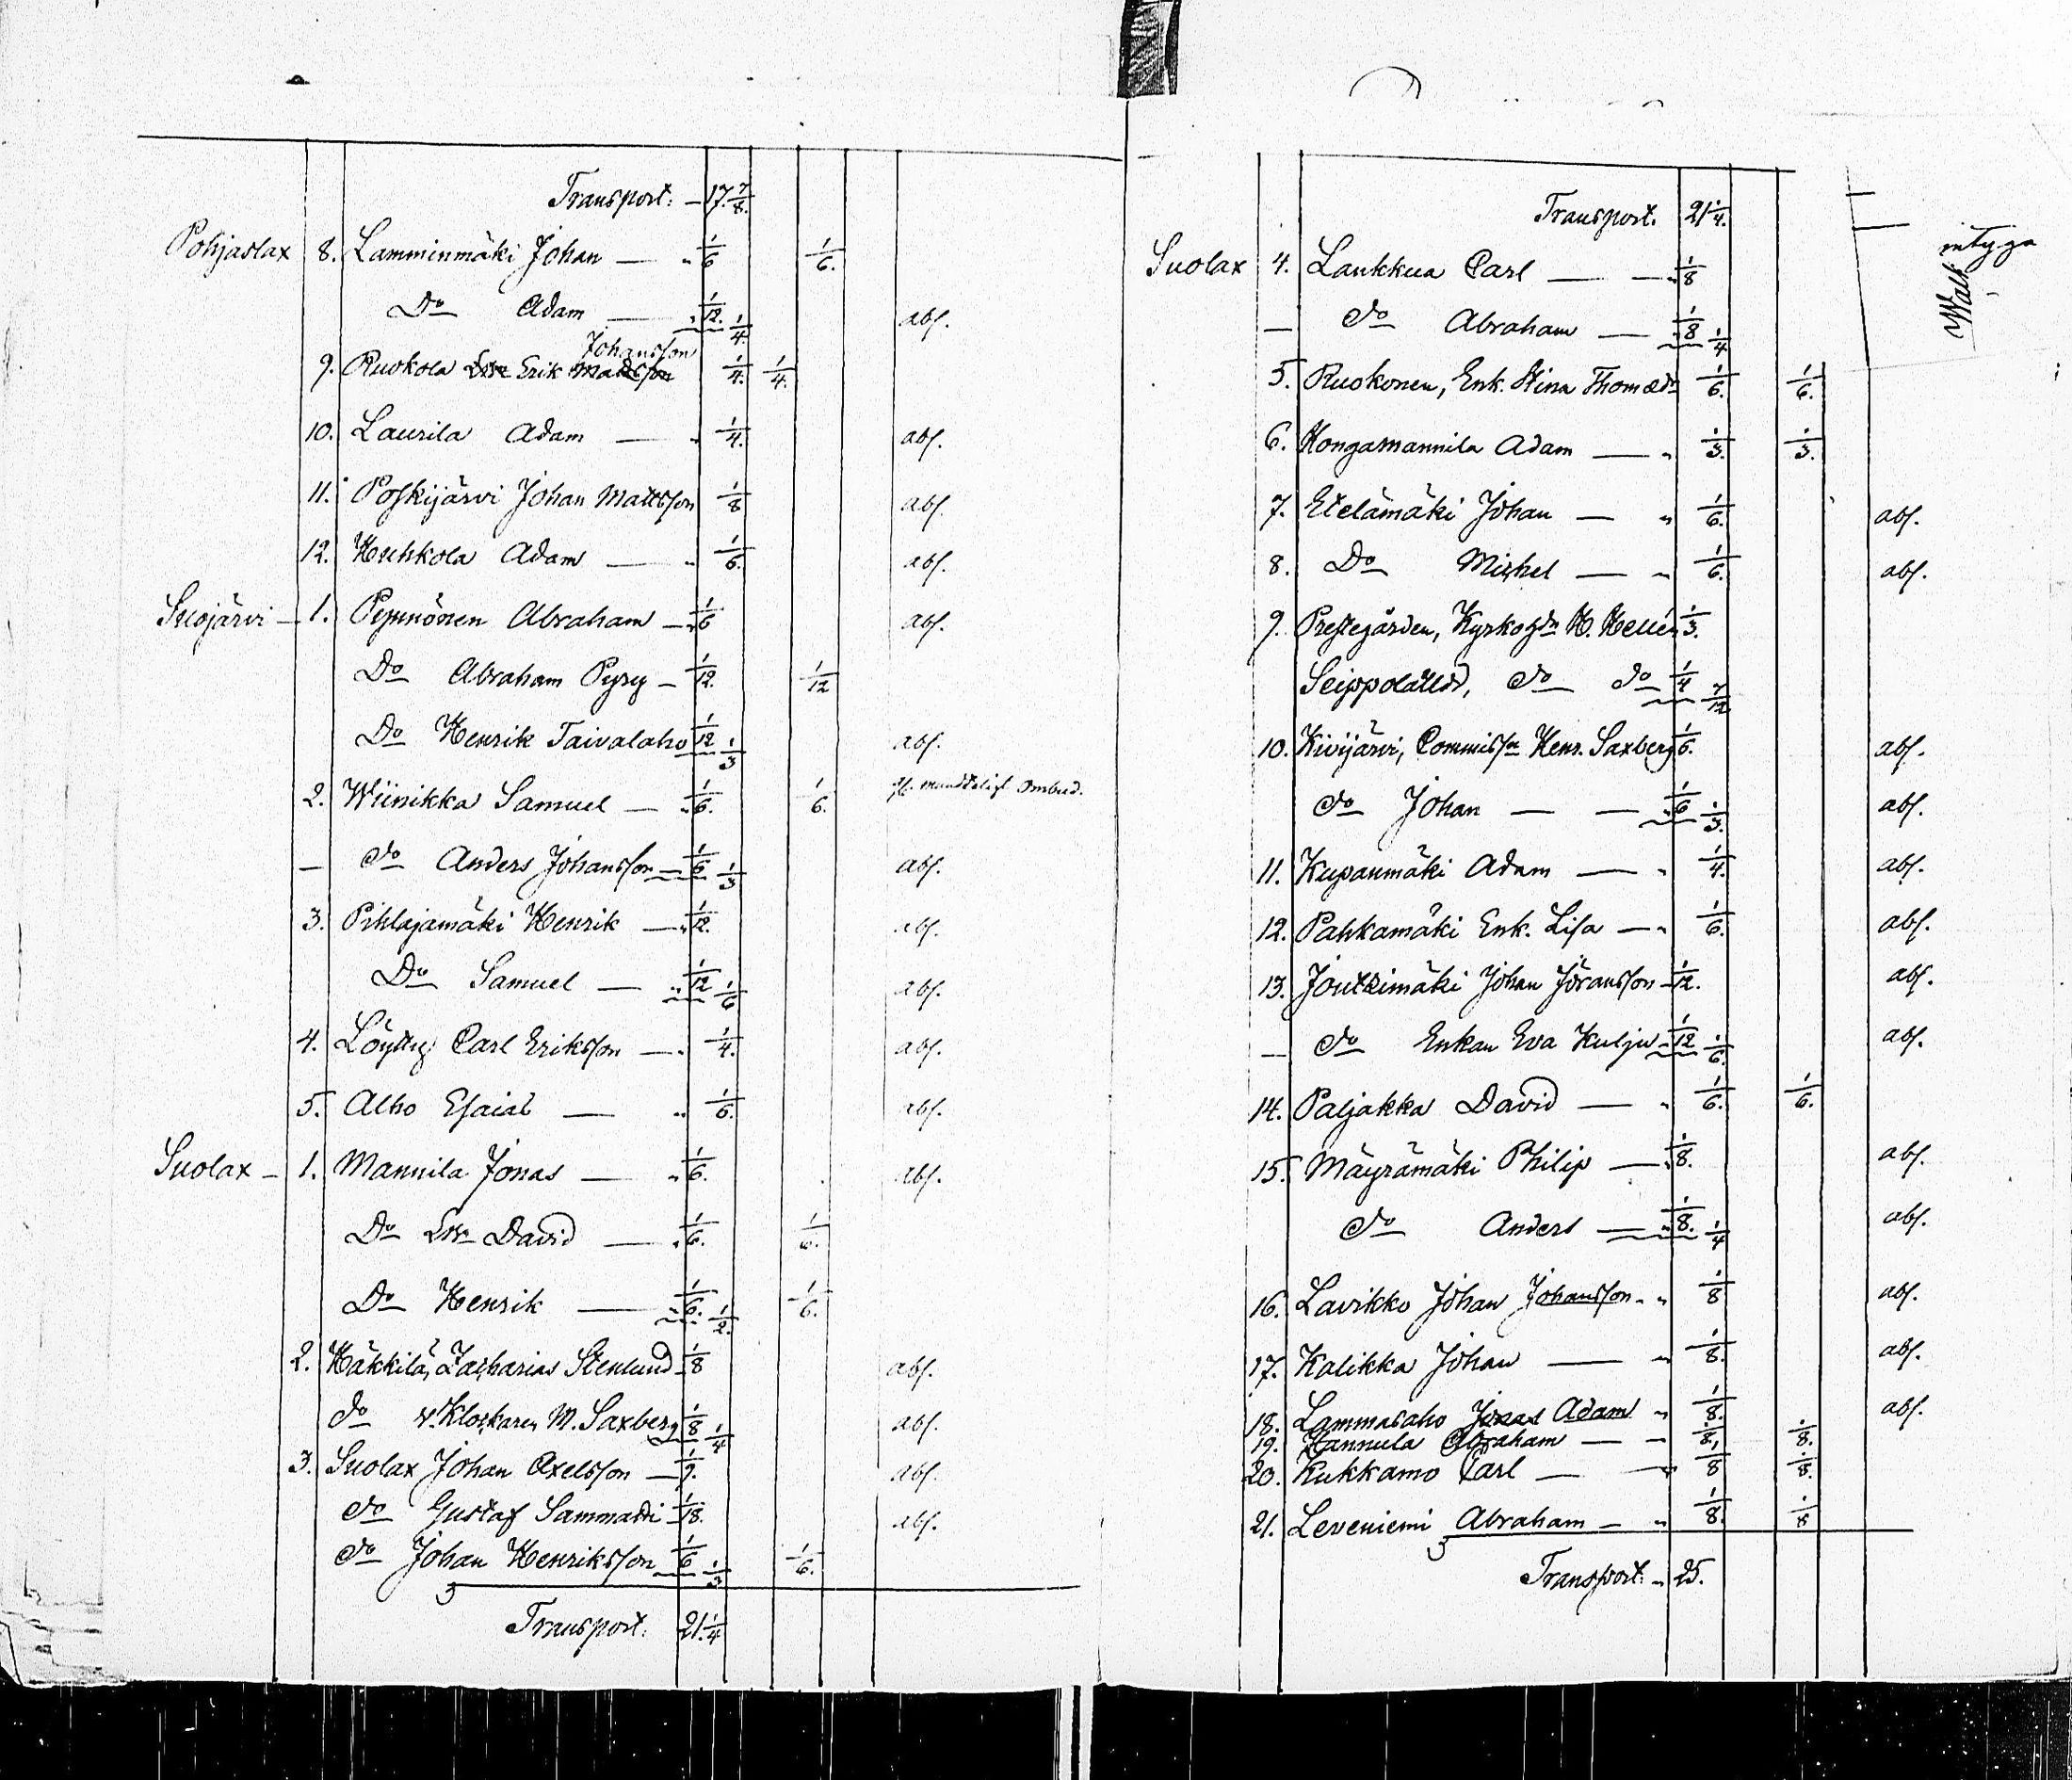 Transport: — 17 7/8.
Pohjaslax 8. Lamminmäki Johan — " 1/6 1/6.
Do Adam — " 1/12. 1/4. abs.
Johansson
9. Ruokola Erik Mattsson 1/4. 1/4.
10. Laurila Adam — " 1/4. abs.
11. Poskijärvi Johan Mattsson 1/8 abs.
12. Huhkola Adam — " 1/6. abs.
Suojärvi — 1. Pynnönen Abraham — " 1/6 abs.
Do Abraham Pyry — 1/12. 1/12
Do Henrik Taivalaho 1/12 1/3 abs.
2. Wiinikka Samuel — " 1/6. 1/6. mundtligt ombud.
— do Anders Johansson — 1/6 1/3 abs.
3. Pihlajamäki Henrik — " 1/12. abs.
Do Samuel — " 1/12 1/6 abs.
4. Löytty Carl Eriksson — " 1/4. abs.
5. Alho Esaias — " 1/6. abs.
Suolax — 1. Mannila Jonas — " 1/6. abs.
Do David — " 1/6. 1/6.
Do Henrik — " 1/6. 1/2. 1/6.
2. Häkkilä, Zacharias Stenlund 1/8 abs.
do v. Klockaren M. Saxberg 1/8 1/4 abs.
3. Suolax Johan Axelsson — 1/9. abs.
do Gustaf Sammatti — 1/18. abs.
do Johan Henriksson 1/6 1/3 1/6.
Transport: 21 1/4
Transport. 21 1/4.
intyga
Walt
Suolax 4. Laukkua Carl — — " 1/8
— do Abraham — " 1/8 1/4
5. Ruokonen, Enk. Stina Thomædr 1/6. 1/6.
6. Kongasmannila Adam — " 1/3. 1/3.
7. Etelämäki Johan — " 1/6. abs.
8. Do Michel — " 1/6. abs.
9. Prestegården, Kyrkohdn H. Hellén 1/3.
Seippolatled, do do 1/4 7/12
10. Kivijärvi, Commissn Henr. Saxberg 1/6. abs.
do Johan — — " 1/6 1/3. abs.
11. Kupanmäki Adam — " 1/4. abs.
12. Pahkamäki Enk. Lisa — " 1/6. abs.
13. Joutsimäki Johan Jöransson — 1/12. abs.
— do Enkan Eva Kulju — 1/12 1/6. abs.
14. Paljakka David — " 1/6. 1/6.
15. Mäyrämäki Philip — " 1/8. abs.
do Anders — " 1/8. 1/4 abs.
16. Lavikko Johan Johansson — " 1/8 abs.
17. Kalikka Johan — " 1/8. abs.
18. Lammasaho Jonas Adam " 1/8. abs.
19. Hannula Abraham — " 1/8. 1/8.
20. Kukkamo Carl — " 1/8 1/8.
21. Leveniemi Abraham — " 1/8. 1/8
Transport: " 25.